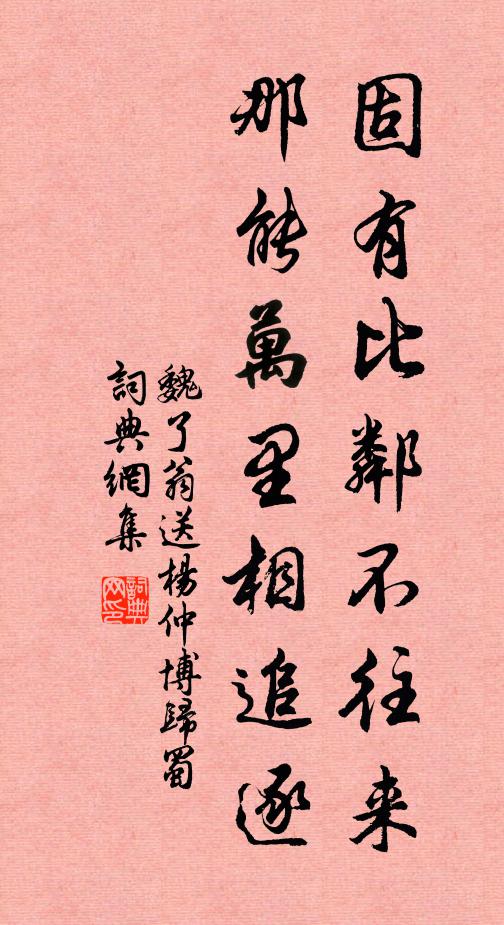 固有比鄰不往来
那能萬里相追逐
魏了翁送楊仲博歸蜀
詞典網集
詞典
网印